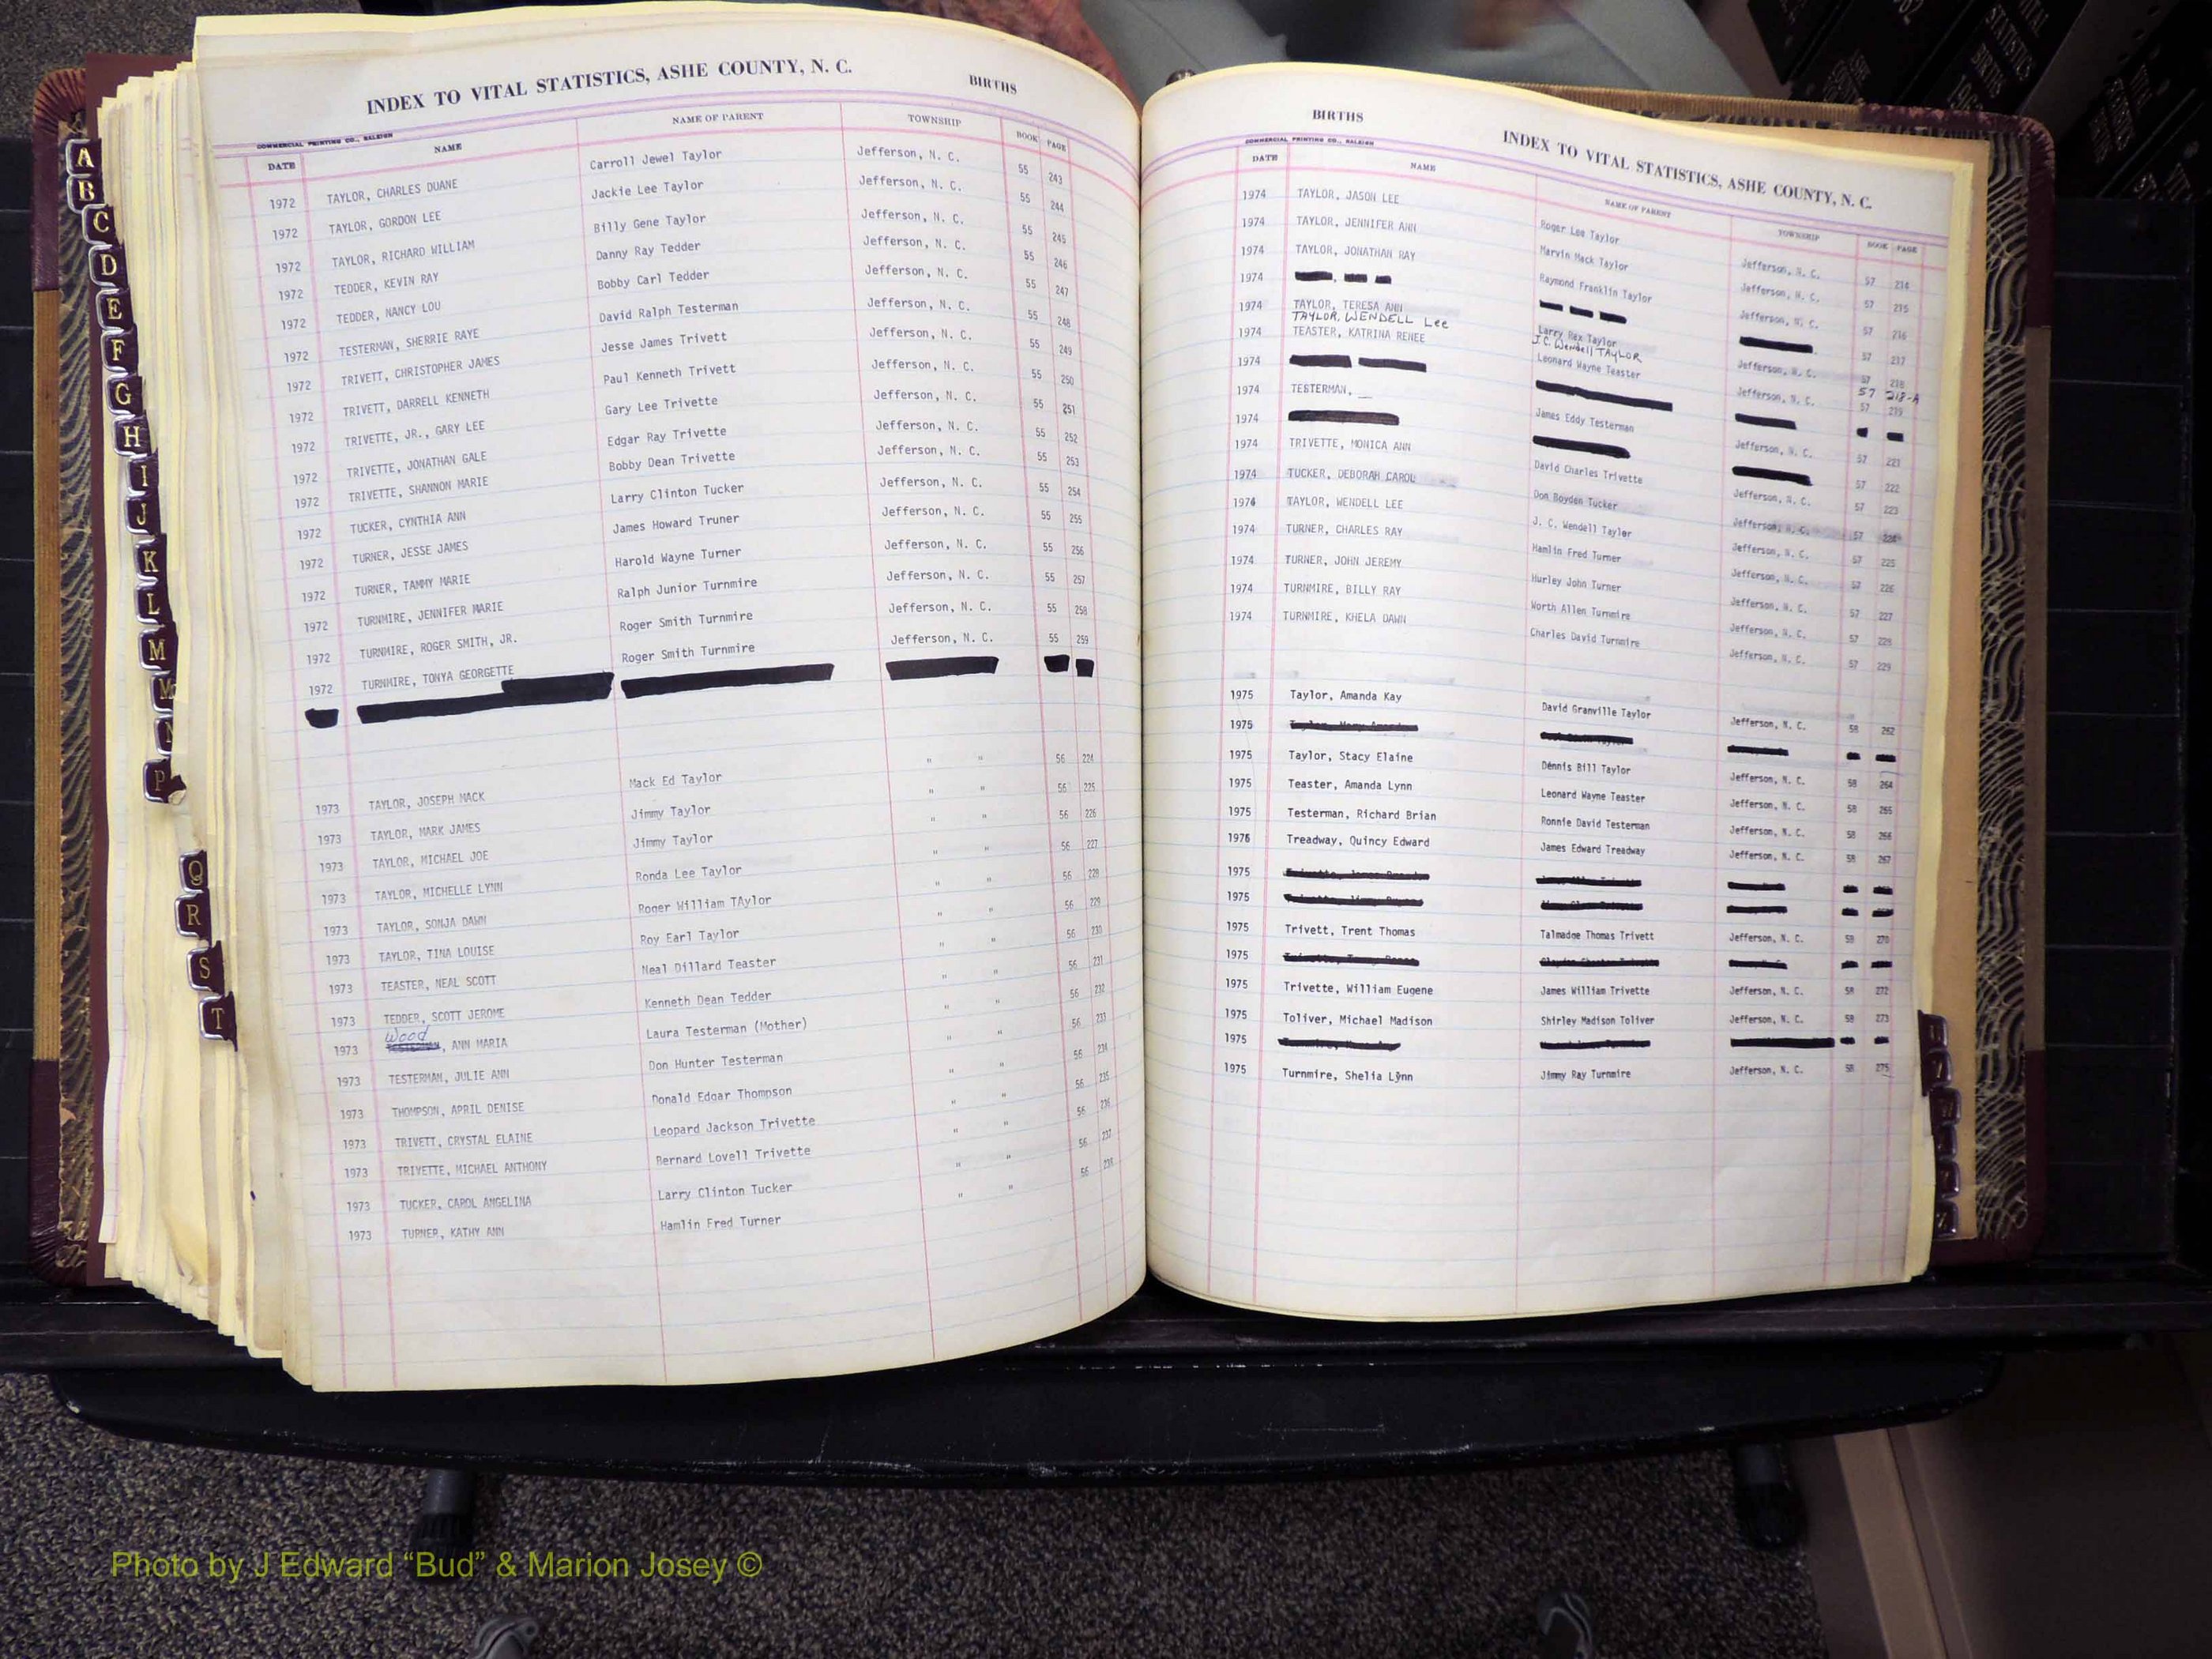 INDEX TO VITAL STATISTICS, ASHE COUNTY, N. C. BIRTHS
COMMERCIAL PRINTING CO., RALEIGH
DATE NAME NAME OF PARENT TOWNSHIP BOOK PAGE
1972 TAYLOR, CHARLES DUANE Carroll Jewel Taylor Jefferson, N. C. 55 243
1972 TAYLOR, GORDON LEE Jackie Lee Taylor Jefferson, N. C. 55 244
1972 TAYLOR, RICHARD WILLIAM Billy Gene Taylor Jefferson, N. C. 55 245
1972 TEDDER, KEVIN RAY Danny Ray Tedder Jefferson, N. C. 55 246
1972 TEDDER, NANCY LOU Bobby Carl Tedder Jefferson, N. C. 55 247
1972 TESTERMAN, SHERRIE RAYE David Ralph Testerman Jefferson, N. C. 55 248
1972 TRIVETT, CHRISTOPHER JAMES Jesse James Trivett Jefferson, N. C. 55 249
1972 TRIVETT, DARRELL KENNETH Paul Kenneth Trivett Jefferson, N. C. 55 250
1972 TRIVETTE, JR., GARY LEE Gary Lee Trivette Jefferson, N. C. 55 251
1972 TRIVETTE, JONATHAN GALE Edgar Ray Trivette Jefferson, N. C. 55 252
1972 TRIVETTE, SHANNON MARIE Bobby Dean Trivette Jefferson, N. C. 55 253
1972 TUCKER, CYNTHIA ANN Larry Clinton Tucker Jefferson, N. C. 55 254
1972 TURNER, JESSE JAMES James Howard Truner Jefferson, N. C. 55 255
1972 TURNER, TAMMY MARIE Harold Wayne Turner Jefferson, N. C. 55 256
1972 TURNMIRE, JENNIFER MARIE Ralph Junior Turnmire Jefferson, N. C. 55 257
1972 TURNMIRE, ROGER SMITH, JR. Roger Smith Turnmire Jefferson, N. C. 55 258
1972 TURNMIRE, TONYA GEORGETTE Roger Smith Turnmire Jefferson, N. C. 55 259
1973 TAYLOR, JOSEPH MACK Mack Ed Taylor " " 56 224
1973 TAYLOR, MARK JAMES Jimmy Taylor " " 56 225
1973 TAYLOR, MICHAEL JOE Jimmy Taylor " " 56 226
1973 TAYLOR, MICHELLE LYNN Ronda Lee Taylor " " 56 227
1973 TAYLOR, SONJA DAWN Roger William TAylor " " 56 228
1973 TAYLOR, TINA LOUISE Roy Earl Taylor " " 56 229
1973 TEASTER, NEAL SCOTT Neal Dillard Teaster " " 56 230
1973 TEDDER, SCOTT JEROME Kenneth Dean Tedder " " 56 231
Wood
1973 , ANN MARIA Laura Testerman (Mother) " " 56 232
1973 TESTERMAN, JULIE ANN Don Hunter Testerman " " 56 233
1973 THOMPSON, APRIL DENISE Donald Edgar Thompson " " 56 234
1973 TRIVETT, CRYSTAL ELAINE Leopard Jackson Trivette " " 56 235
1973 TRIVETTE, MICHAEL ANTHONY Bernard Lovell Trivette " " 56 236
1973 TUCKER, CAROL ANGELINA Larry Clinton Tucker " " 56 237
1973 TURNER, KATHY ANN Hamlin Fred Turner " " 56 238
BIRTHS INDEX TO VITAL STATISTICS, ASHE COUNTY, N. C.
COMMERCIAL PRINTING CO., RALEIGH
DATE NAME NAME OF PARENT TOWNSHIP BOOK PAGE
1974 TAYLOR, JASON LEE Roger Lee Taylor Jefferson, N. C. 57 214
1974 TAYLOR, JENNIFER ANN Marvin Mack Taylor Jefferson, N. C. 57 215
1974 TAYLOR, JONATHAN RAY Raymond Franklin Taylor Jefferson, N. C. 57 216
1974 57 217
1974 TAYLOR, TERESA ANN Larry Rex Taylor Jefferson, N. C. 57 218
TAYLOR, WENDELL Lee J.C. Wendell TAYLOR 57 218-A
1974 TEASTER, KATRINA RENEE Leonard Wayne Teaster Jefferson, N. C. 57 219
1974
1974 TESTERMAN, __ James Eddy Testerman Jefferson, N. C. 57 221
1974 57 222
1974 TRIVETTE, MONICA ANN David Charles Trivette Jefferson, N. C. 57 223
1974 TUCKER, DEBORAH CAROL Don Boyden Tucker Jefferson, N. C. 57 224
1974 TAYLOR, WENDELL LEE J. C. Wendell Taylor Jefferson, N. C. 57 225
1974 TURNER, CHARLES RAY Hamlin Fred Turner Jefferson, N. C. 57 226
1974 TURNER, JOHN JEREMY Hurley John Turner Jefferson, N. C. 57 227
1974 TURNMIRE, BILLY RAY Worth Allen Turnmire Jefferson, N. C. 57 228
1974 TURNMIRE, KHELA DAWN Charles David Turnmire Jefferson, N. C. 57 229
1975 Taylor, Amanda Kay David Granville Taylor Jefferson, N. C. 58 262
1975
1975 Taylor, Stacy Elaine Dennis Bill Taylor Jefferson, N. C. 58 264
1975 Teaster, Amanda Lynn Leonard Wayne Teaster Jefferson, N. C. 58 265
1975 Testerman, Richard Brian Ronnie David Testerman Jefferson, N. C. 58 266
1976 Treadway, Quincy Edward James Edward Treadway Jefferson, N. C. 58 267
1975
1975
1975 Trivett, Trent Thomas Talmadge Thomas Trivett Jefferson, N. C. 58 270
1975
1975 Trivette, William Eugene James William Trivette Jefferson, N. C. 58 272
1975 Toliver, Michael Madison Shirley Madison Toliver Jefferson, N. C. 58 273
1975
1975 Turnmire, Shelia Lynn Jimmy Ray Turnmire Jefferson, N. C. 58 275
A
B
C
D
E
F
G
H
I
J
K
L
M
Mc
N
P
Q
R
S
T
W
VITAL STATISTICS BIRTHS
Photo by J Edward “Bud” & Marion Josey ©